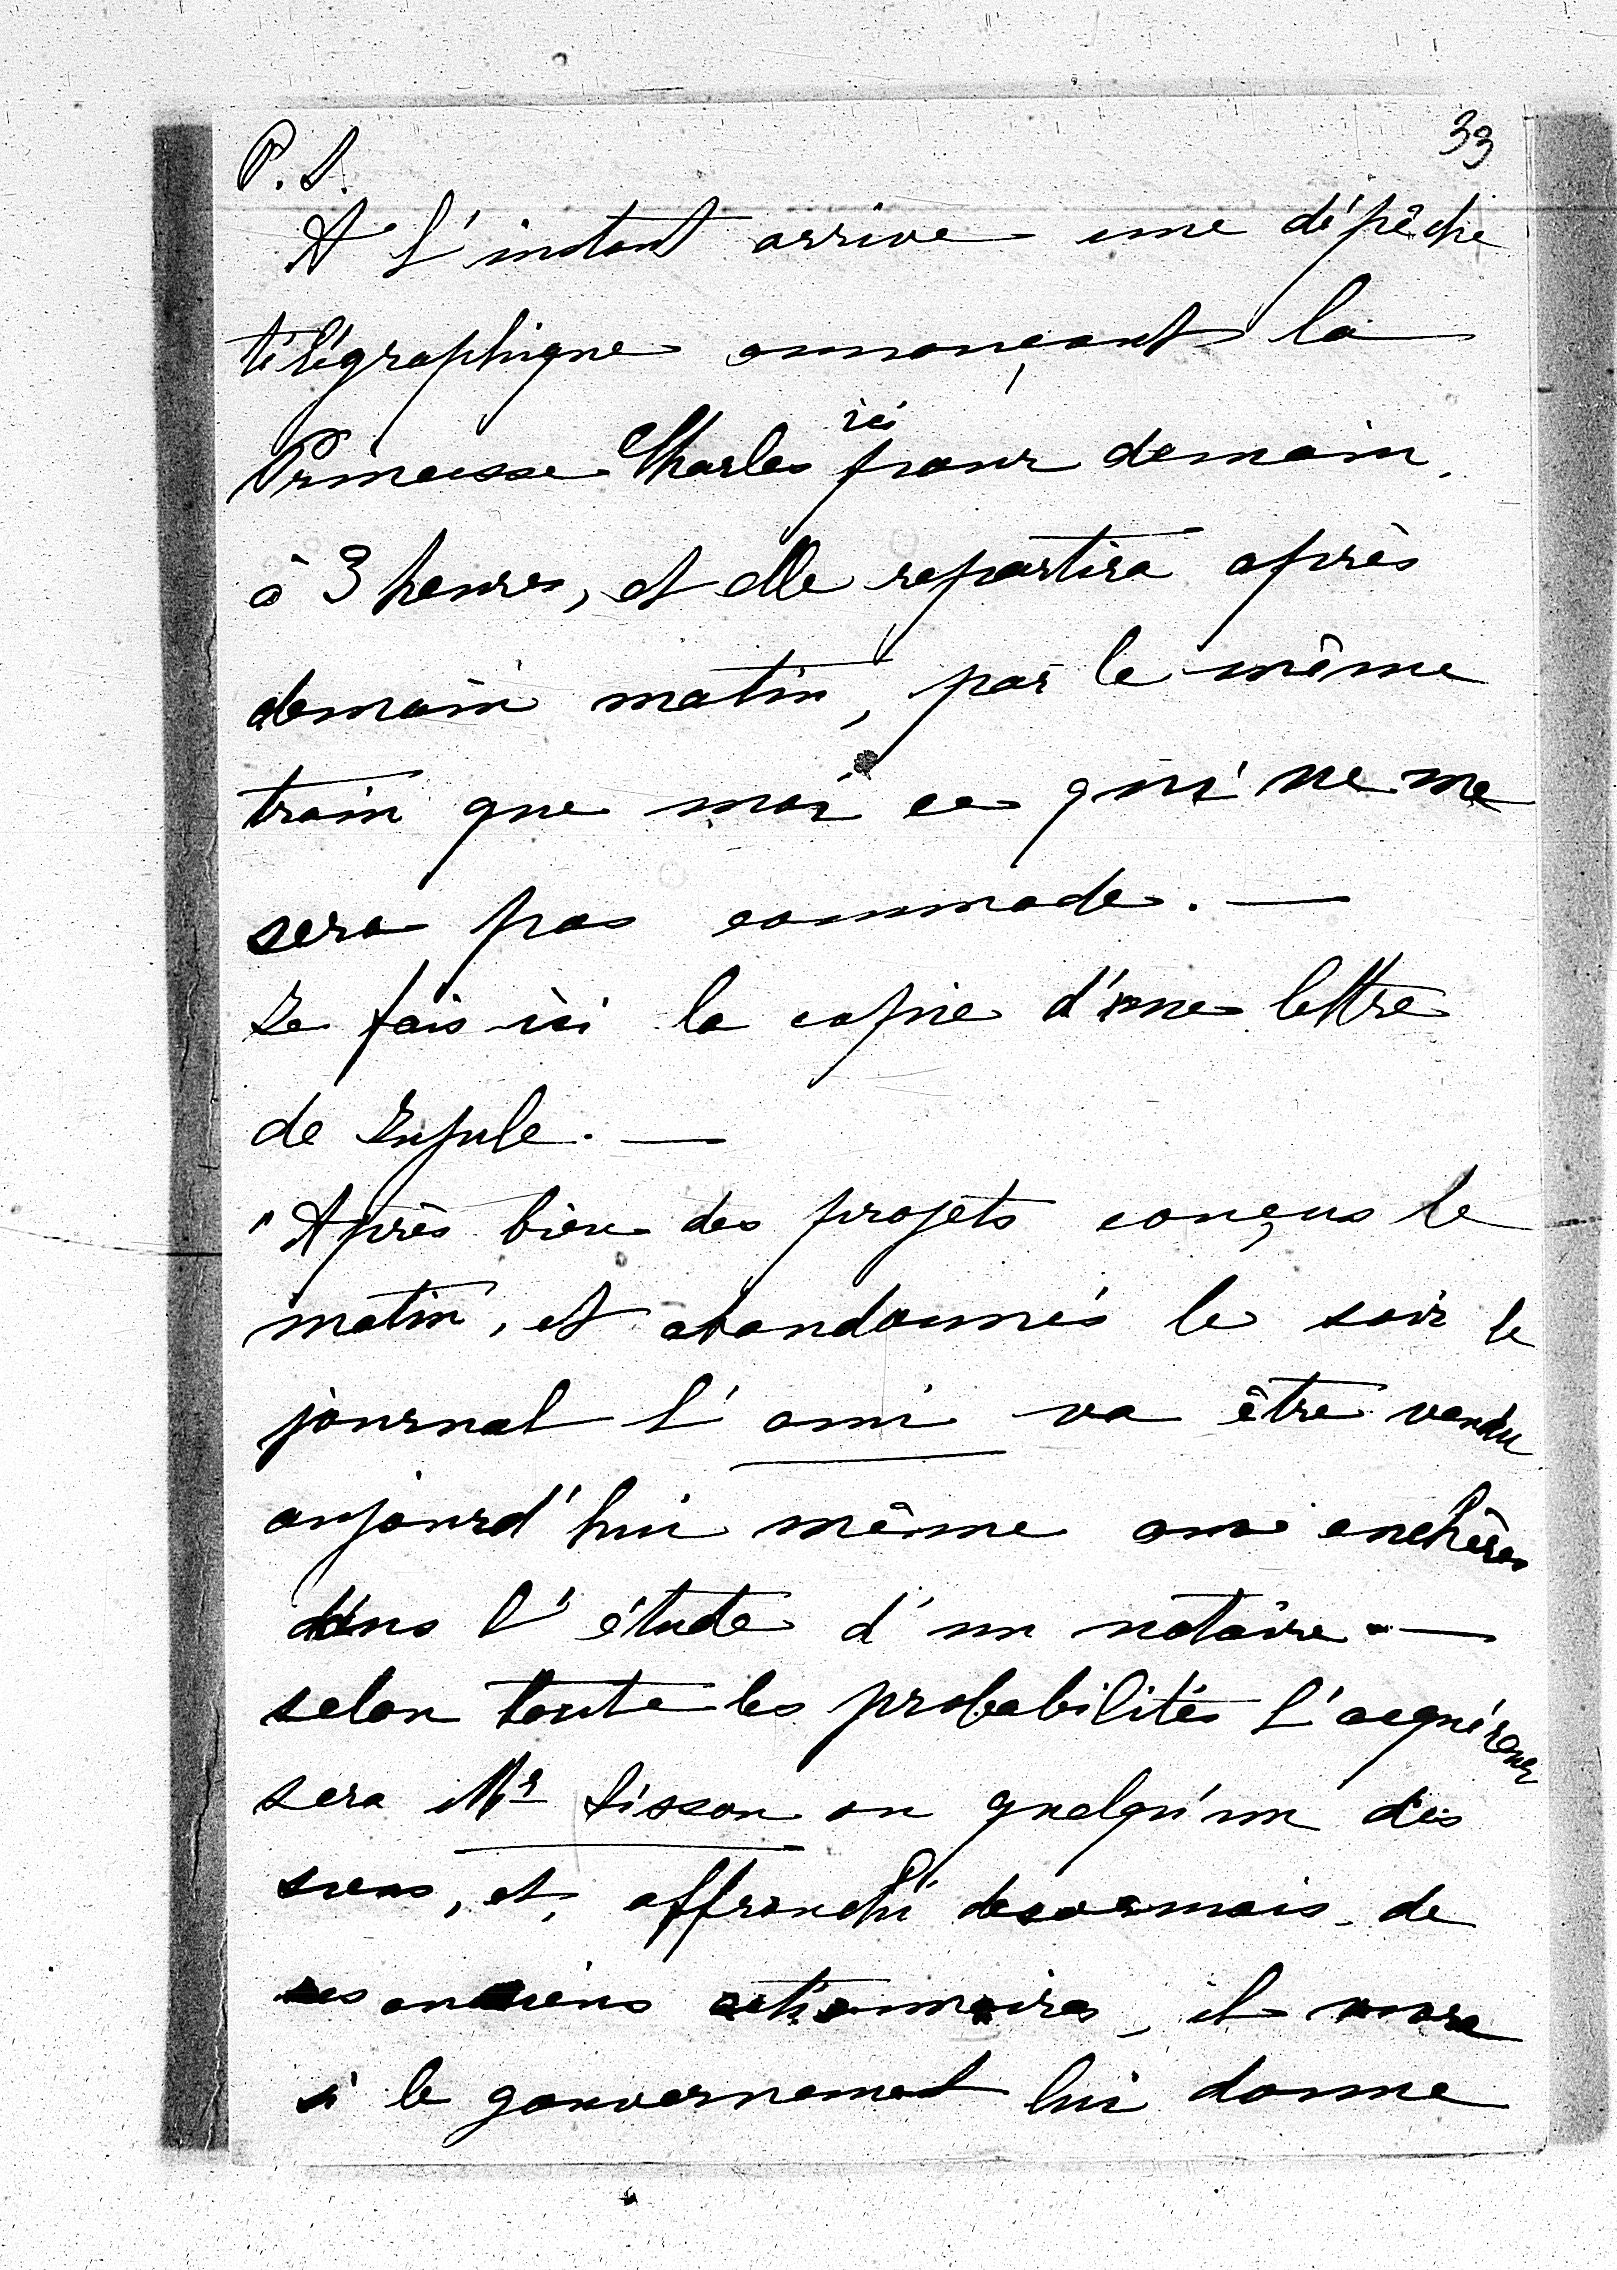 33
P. S.
A l'instant arrive une dépêche
télégraphique annonçant la
Princesse Charles ici pour demain,
à 3 heures, et elle repartira après
demain matin, par le même
train que moi ce qui ne me
sera pas commode. —
Je fais ici la copie d'une lettre
de Jupile. —
"Après bien des projets conçus le
matin, et abandonnés le soir le
journal l'ami va être vendu
aujourd'hui même aux enchères
dans l'étude d'un notaire. —
selon toute les probabilités l'acquéreur
sera Mr Sisson ou quelqu'un des
siens, et, affranchi desormais de
ses anciens actionnaires, il
si le gouvernement lui donne